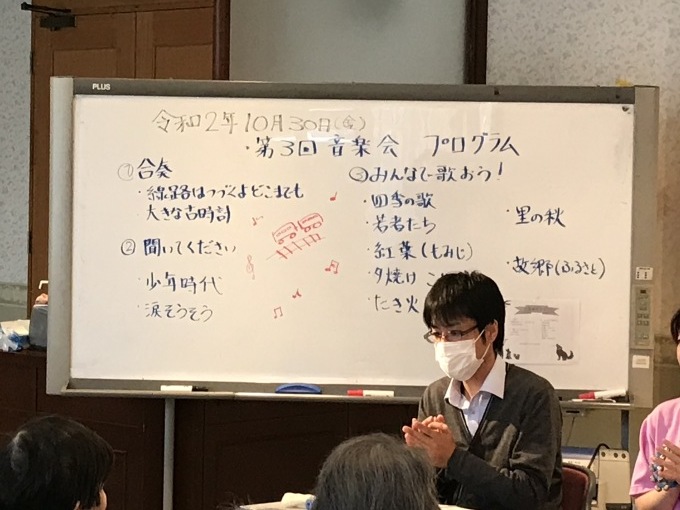 PLUS
令和2年10月30日(金)
・第3回 音楽会 プログラム
① 合奏
・線路はつづくよどこまでも
・大きな古時計
② 聞いてください
・少年時代
・涙そうそう
③ みんなで歌おう!
・四季の歌
・若者たち
・紅葉(もみじ)
・夕焼け こ
・たき火
・里の秋
・故郷(ふるさと)